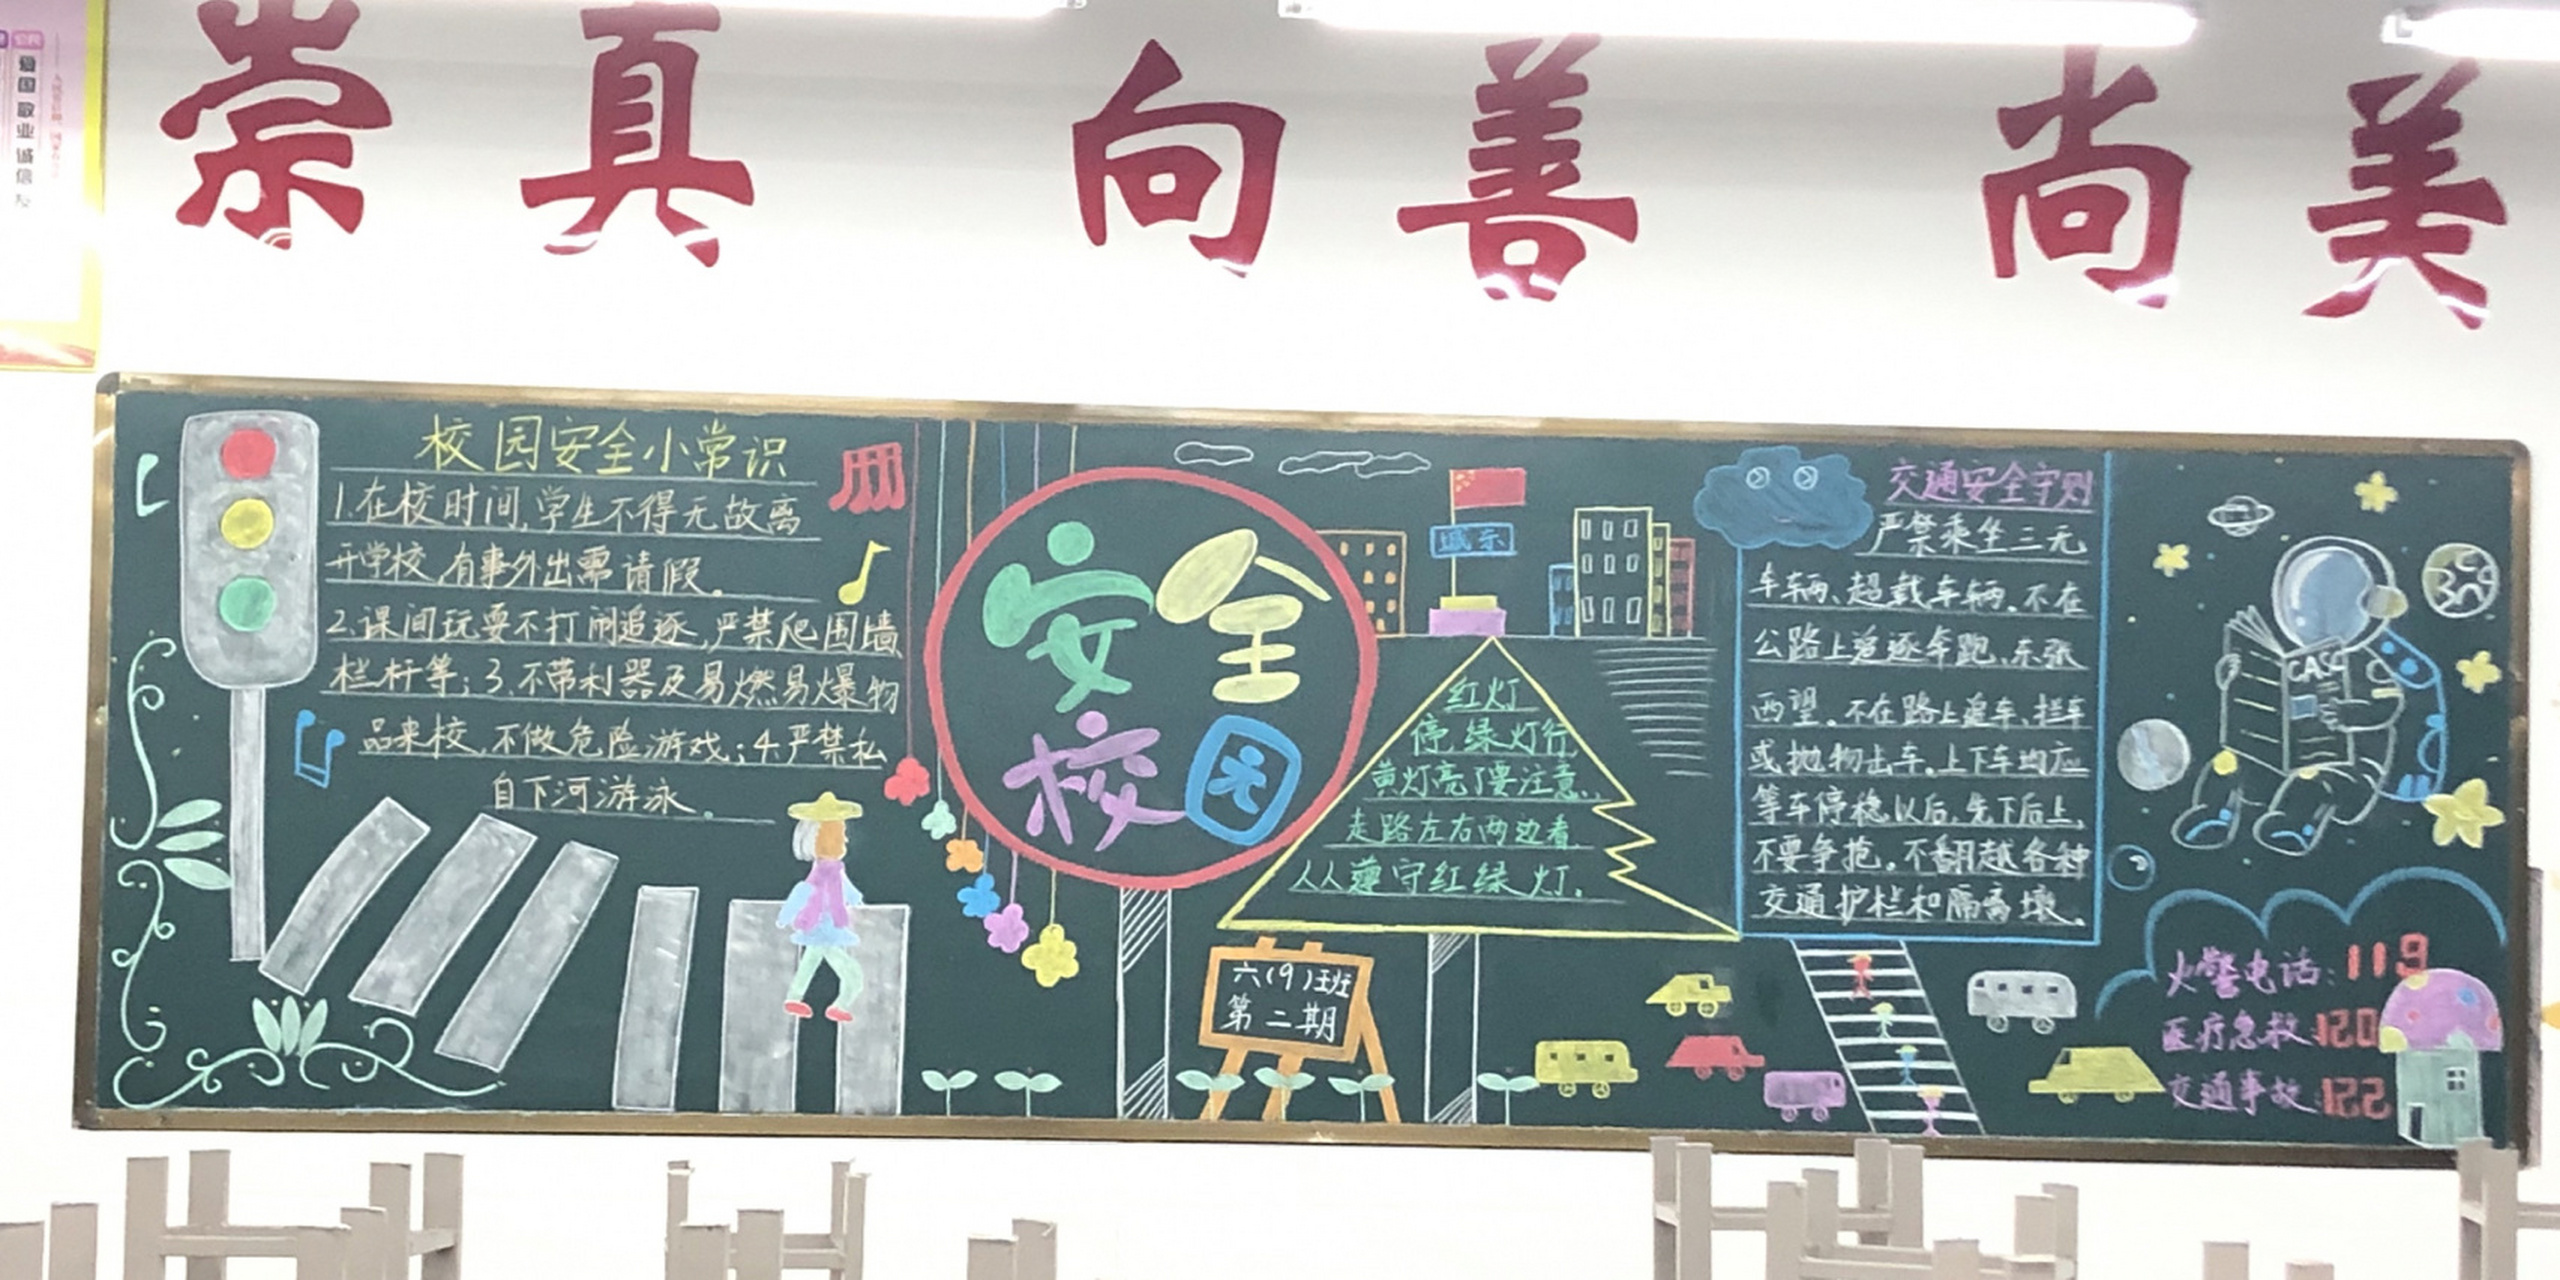 崇真 向善 尚美
爱国 敬业 诚信 友
校园安全小常识
1.在校时间,学生不得无故离
开学校,有事外出需请假。
2.课间玩耍不打闹追逐,严禁爬围墙
栏杆等;3.不带利器及易燃易爆物
品来校,不做危险游戏;4.严禁私
自下河游泳。
安全
校园
城东
红灯
停绿灯行
黄灯亮了要注意.
走路左右两边看.
人人遵守红绿灯.
六(9)班
第二期
交通安全守则
严禁乘坐三无
车辆、超载车辆.不在
公路上追逐奔跑、东张
西望。不在路上追车、拦车
或抛物击车.上下车均应
等车停稳以后,先下后上,
不要争抢。不翻越各种
交通护栏和隔离墩。
CASC
火警电话:119
医疗急救:120
交通事故:122